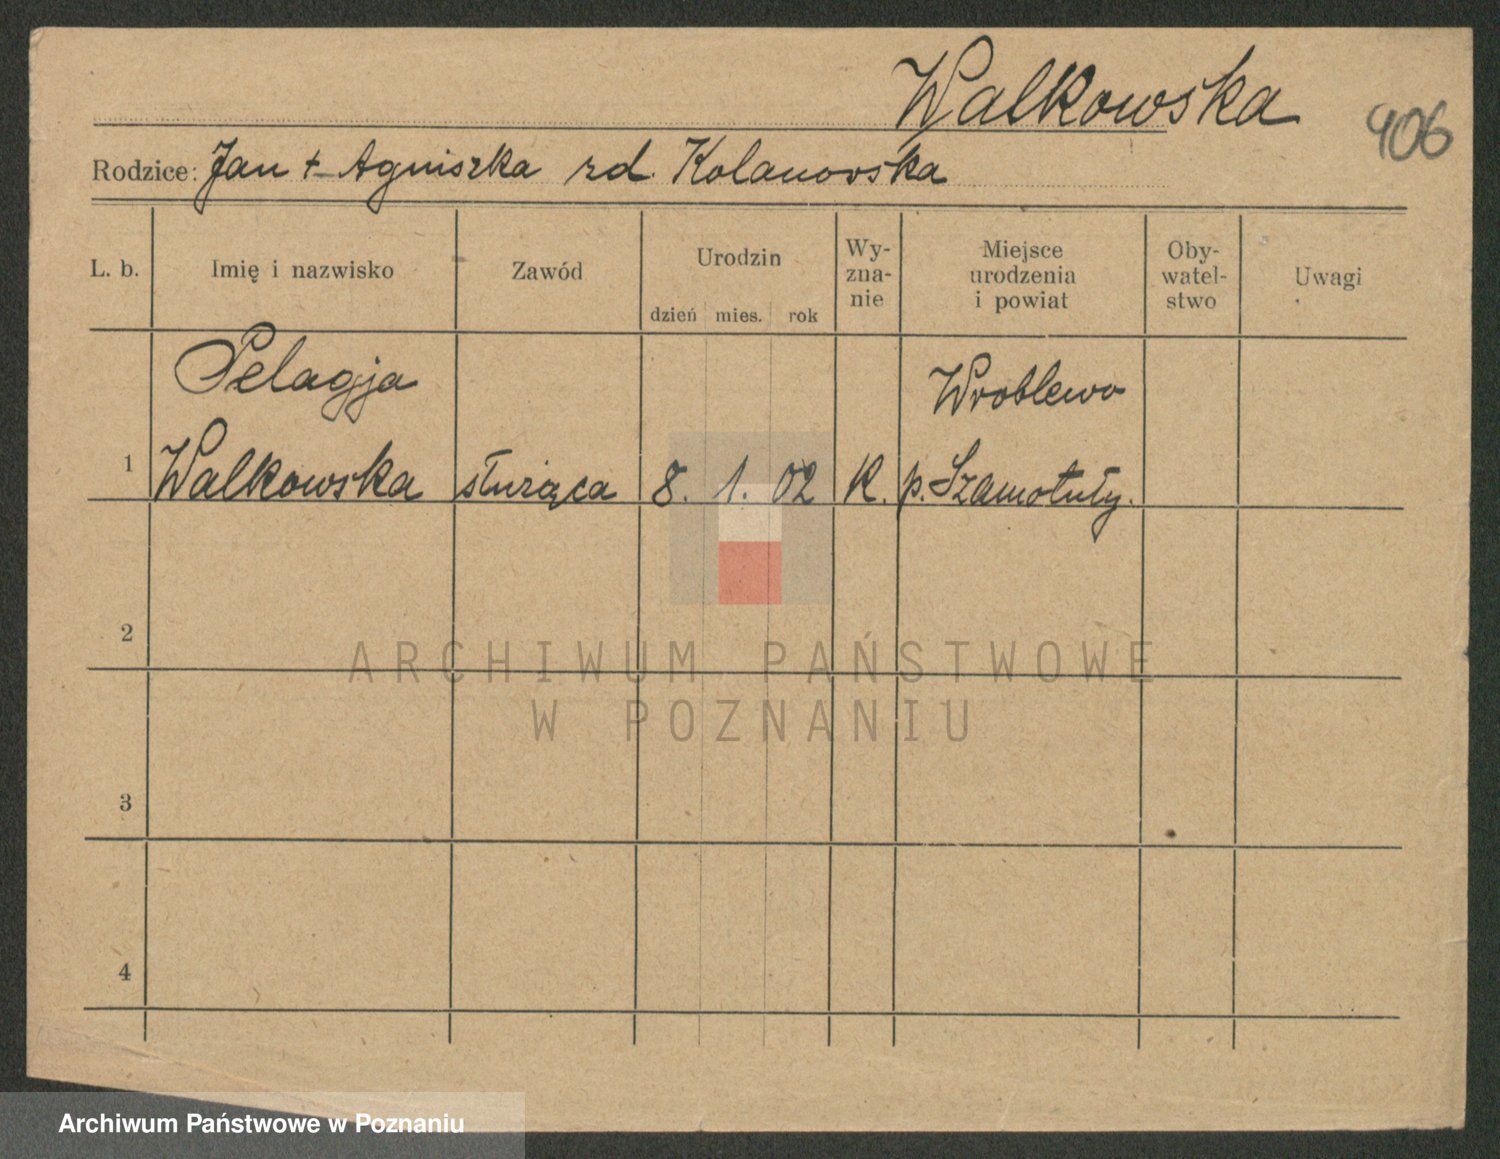 Walkowska
406
Rodzice: Jan + Agniszka rd. Kolanowska
L. b.
Imię i nazwisko
Zawód
Urodzin
dzień mies. rok
Wy-
zna-
nie
Miejsce
urodzenia
i powiat
Oby-
watel-
stwo
Uwagi
Pelagja
Wroblewo
1 Walkowska służąca 8. 1. 02 K. p. Szamotuły.
2
ARCHIWUM PAŃSTWOWE
W POZNANIU
3
4
Archiwum Państwowe w Poznaniu